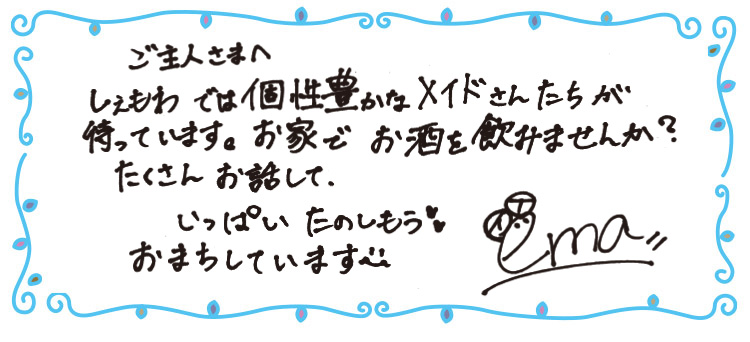 ご主人さまへ
しぇもわ では個性豊かなメイドさんたちが
待っています。お家で お酒を飲みませんか?
たくさん お話して、
いっぱい たのしもう
おまちしています
ema